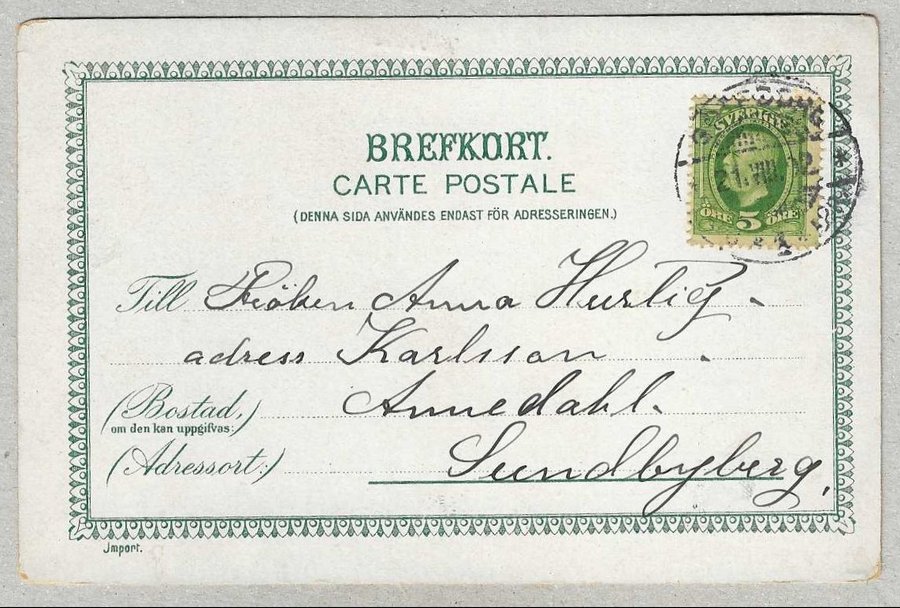 BREFKORT.
CARTE POSTALE
(DENNA SIDA ANVÄNDES ENDAST FÖR ADRESSERINGEN.)
SVERIGE
21.VIII.
ÖRE 5 ÖRE
Till Fröken Anna Hurtig
adress Karlsson
(Bostad,) Annedahl.
om den kan uppgifvas:
(Adressort:) Sundbyberg,
Import.